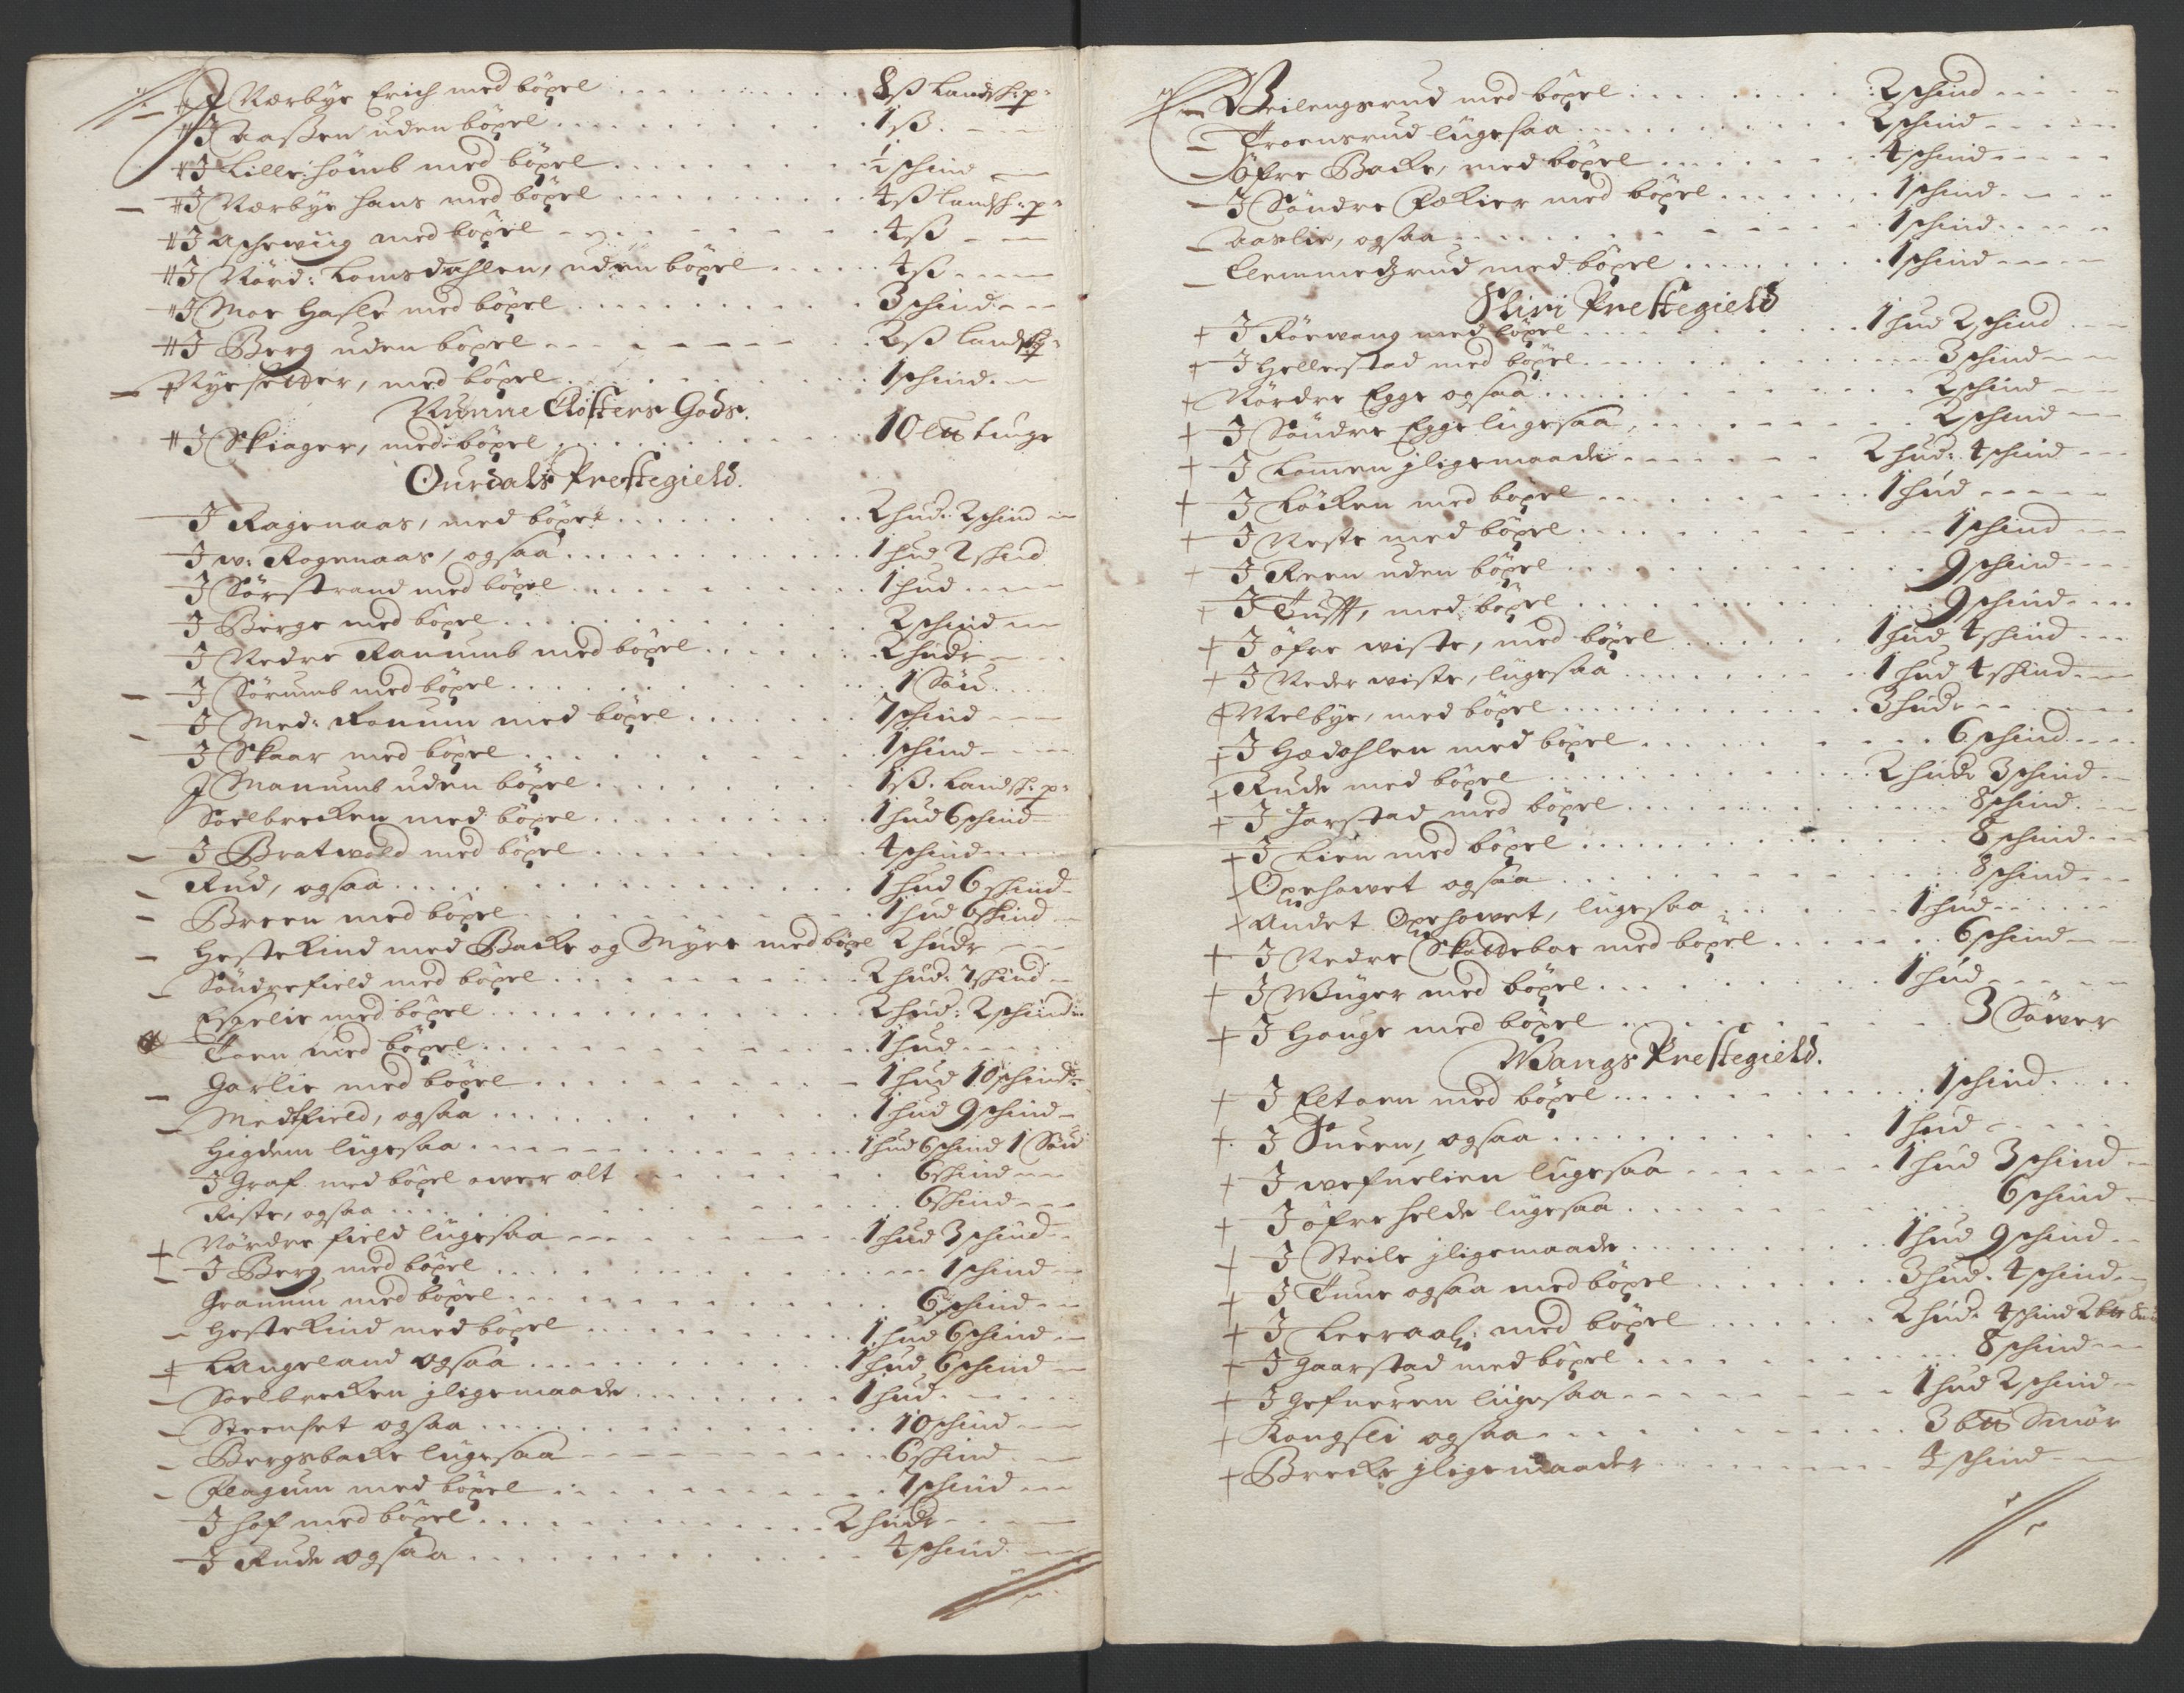 J Nærbye Erich med böxel . . . . . . . . . 8 ß Landsk: p:
J Aaßen uden böxel . . . . . . . . . 1 ß.
J Lille: hömb med böxel . . . . . . . . ½ schind
J Nærbye Hans med böxel . . . . . . . . 4 ß Landsk: p:
J Aschewiig med böxel . . . . . . . . 4 ß
J Nörd: Lomsdahlen, uden böxel . . . . . 4 ß
J Moe Hasle med böxel . . . . . . . . 3 schind
J Berg uden böxel . . . . . . . . 2 ß Landsk:
Nyesetter, med böxel . . . . . . . . 1 schind.
Nunne Closters Gods.
J Skiager, med böxel . . . . . . . . 10 L℔ tunge
Ourdals Prestegield.
J Ragenaas, med böxel . . . . . . . . 2 hud: 2 schind
J w: Rogenaas, ogsaa . . . . . . . . 1 hud 2 schind
J Sörstrand med böxel . . . . . . . . 1 hud
J Berge med böxel . . . . . . . . 2 schind
J Nedre Ranumb med böxel . . . . . . . 2 huder
J Sörumb med böxel . . . . . . . . 1 Söü
J Med: Ronum med böxel . . . . . . . 7 schind
J Skaar med böxel . . . . . . . . 1 schind
J Manumb uden böxel . . . . . . . . 1 ß. Landsk: p:
Soelbrecken med böxel . . . . . . . . 1 hud 6 schind
J Bratwold med böxel . . . . . . . . 4 schind
Rud, ogsaa . . . . . . . . 1 hud 6 schind
Breen med böxel . . . . . . . . 1 hud 6 schind
Hestekind med Backe og Myre med böxel 2 huder
Söndrefield med böxel . . . . . . . . 2 hud: 7 schind
Espelie med böxel . . . . . . . . 2 hud: 2 schind
Toen med böxel . . . . . . . . 1 hud
Garlie med böxel . . . . . . . . 1 hud 10 schind
Medtfield, ogsaa . . . . . . . . 1 hud 9 schind
Higdem lügesaa . . . . . . . . 1 hud 6 schind 1 Söü
J Graf med böxel ower alt . . . . . . 6 schind
Riste, ogsaa . . . . . . . . 6 schind
Nördre field lügesaa . . . . . . . . 1 hud 3 schind
J Berg med böxel . . . . . . . . 1 schind
Granum med böxel . . . . . . . . 6 schind
Hestekind med böxel . . . . . . . . 1 hud 6 schind
Langeland ogsaa . . . . . . . . 1 hud 6 schind
Soelbrecken jligemaade . . . . . . . 1 hud
Steenset ogsaa . . . . . . . . 10 schind
Bergsbacke lügesaa . . . . . . . . 6 schind
Flagum med böxel . . . . . . . . 1 schind
J Hof med böxel . . . . . . . . 2 huder
J Rude ogsaa . . . . . . . . 4 schind
Weilengsrud med böxel . . . . . . . . 2 schind
Troensrud lügesaa . . . . . . . . 2 schind
Öfre Backe, med böxel . . . . . . . . 4 schind
J Söndre Fekier med böxel . . . . . . . 1 schind
Aaslie, ogsaa . . . . . . . . 1 schind
Clemmedzrud med böxel . . . . . . . . 1 schind
Sliri Prestegield
J Röewang med böxel . . . . . . . . 1 hud 2 schind
J Hellestad med böxel . . . . . . . . 3 schind
Nördre Egge ogsaa . . . . . . . . 2 schind
J Söndre Egge lügesaa . . . . . . . . 2 schind
J Lomen jligemaade . . . . . . . . 2 hud: 4 schind
J Löcken med böxel . . . . . . . . 1 hud
J Neste med böxel . . . . . . . . 1 schind
J Reen uden böxel . . . . . . . . 9 schind
J Tufft, med böxel . . . . . . . . 9 schind
J öfre wiste, med böxel . . . . . . . 1 hud 4 schind
J Neder wiste, lügesaa . . . . . . . . 1 hud 4 schind
Melbye, med böxel . . . . . . . . 3 huder
J Hædahlen med böxel . . . . . . . . 6 schind
Rude med böxel . . . . . . . . 2 huder 3 schind
J Jarstad med böxel . . . . . . . . 8 schind
J Lien med böxel . . . . . . . . 8 schind
Opehawet ogsaa . . . . . . . . 8 schind
Andet Opehowet, lügesaa . . . . . . . 1 hud
J Nedre Skatteboe med böxel . . . . . . 6 schind
J Wüger med böxel . . . . . . . . 1 hud
J Hauge med böxel . . . . . . . . 3 Söwer
Wangs Prestegield.
J Eltoen med böxel . . . . . . . . 1 schind
J Sueen, ogsaa . . . . . . . . 1 hud
J wefnelien lügesaa . . . . . . . . 1 hud 3 schind
J öfre helde lügesaa . . . . . . . . 6 schind
J Steile jligemaade . . . . . . . . 1 hud 9 schind
J Tune ogsaa med böxel . . . . . . . 3 hud: 4 schind
J Leeraal: med böxel . . . . . . . . 2 hud: 4 schind 2 b℔
J Gaarstad med böxel . . . . . . . . 8 schind
J Gefneren lügesaa . . . . . . . . 1 hud 2 schind
Kongslei ogsaa . . . . . . . . 3 b℔ Smör
Brecke jligemaader . . . . . . . . 4 schind